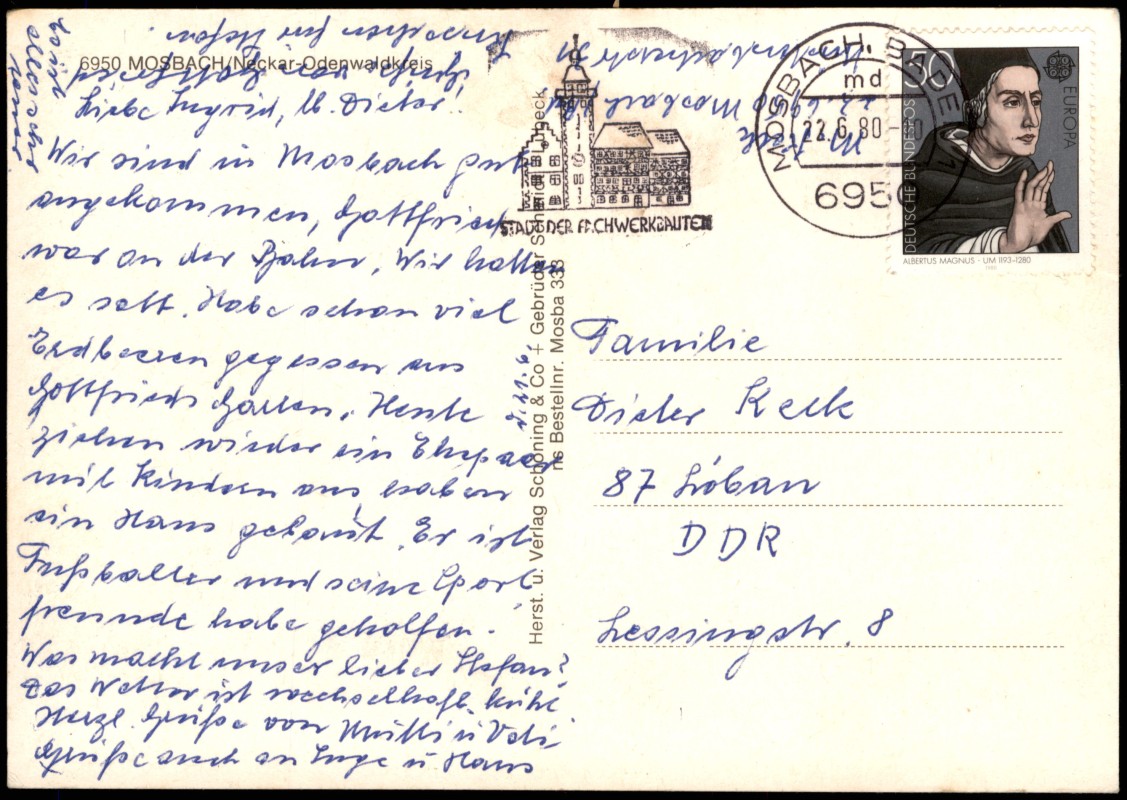 6950 MOSBACH/Neckar-Odenwaldkreis
Liebe Ingrid, lb. Dieter!
Wir sind in Mosbach gut
angekommen, Gottfried
war an der Bahn. Wir hatten
es satt. Habe schon viel
Erdbeeren gegessen aus
Gottfrieds Garten. Heute
ziehen wieder ein Ehepaar
mit Kindern aus haben
ein Haus gebaut. Er ist
Fußballer und seine Sport
freunde habe geholfen.
Was macht unser lieber Stefan?
Das Wetter ist wechselhaft. kühl
Herzl. Grüße von Mutti u Vati
Grüße auch an Inge u Hans
Herst. u. Verlag Schöning & Co + Gebrüder Schmidt
Bestellnr. Mosba 333
STADT DER FACHWERKBAUTEN
MOSBACH, BADEN 1
md
22.6.80
6950
50
DEUTSCHE BUNDESPOST
EUROPA
ALBERTUS MAGNUS · UM 1193-1280
1980
Familie
Dieter Keck
87 Löbau
DDR
Lessingstr. 8